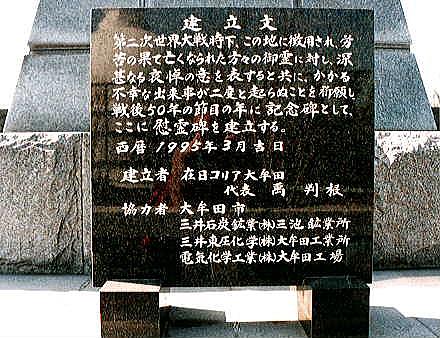 建立文
第二次世界大戦時下、この地に徴用され、労
苦の果て亡くなられた方々の御霊に対し、深
甚なる哀悼の意を表すると共に、かかる
不幸な出来事が二度と起らぬことを祈願し
戦後50年の節目の年に記念碑として、
ここに慰霊碑を建立する。
西暦 1995年3月吉日
建立者 在日コリア大牟田
代表 禹 判根
協力者 大牟田市
三井石炭鉱業(株)三池鉱業所
三井東圧化学(株)大牟田工業所
電気化学工業(株)大牟田工場